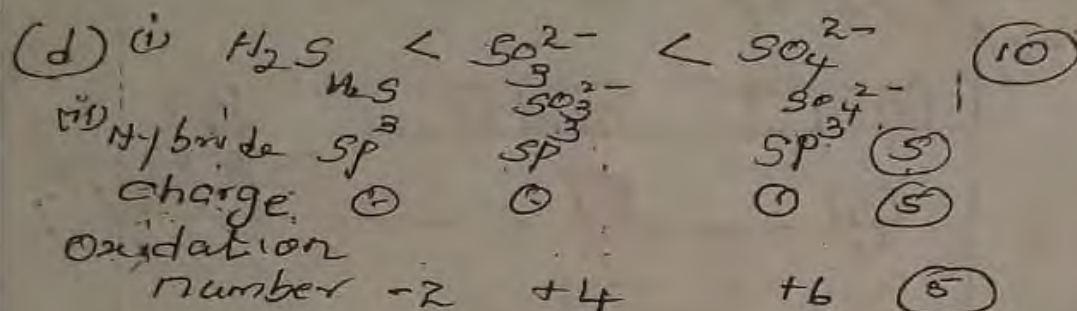 (d) (i) H₂S < SO₃²⁻ < SO₄²⁻ (10)
H₂S SO₃²⁻ SO₄²⁻
(ii) Hybride sp³ sp³ sp³ (5)
charge (5)
oxidation
number -2 +4 +6 (5)